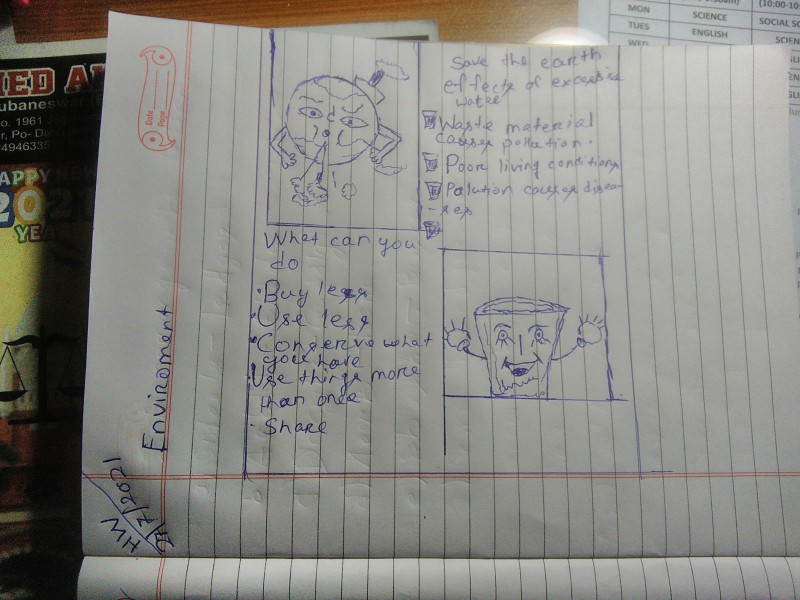 MON
SCIENCE
SOCIAL
TUES
ENGLISH
WED
Date
Page
1961
Po-
4946335
Save the earth
effects of excessive
Waste material
causes pollution.
Poor living conditions
Pollution causes disea-
-ses
What can you
do
• Buy less
• Use less
• Conserve what
you have
• Use things more
than once
• Share
Enviroment
HW
/7/2021